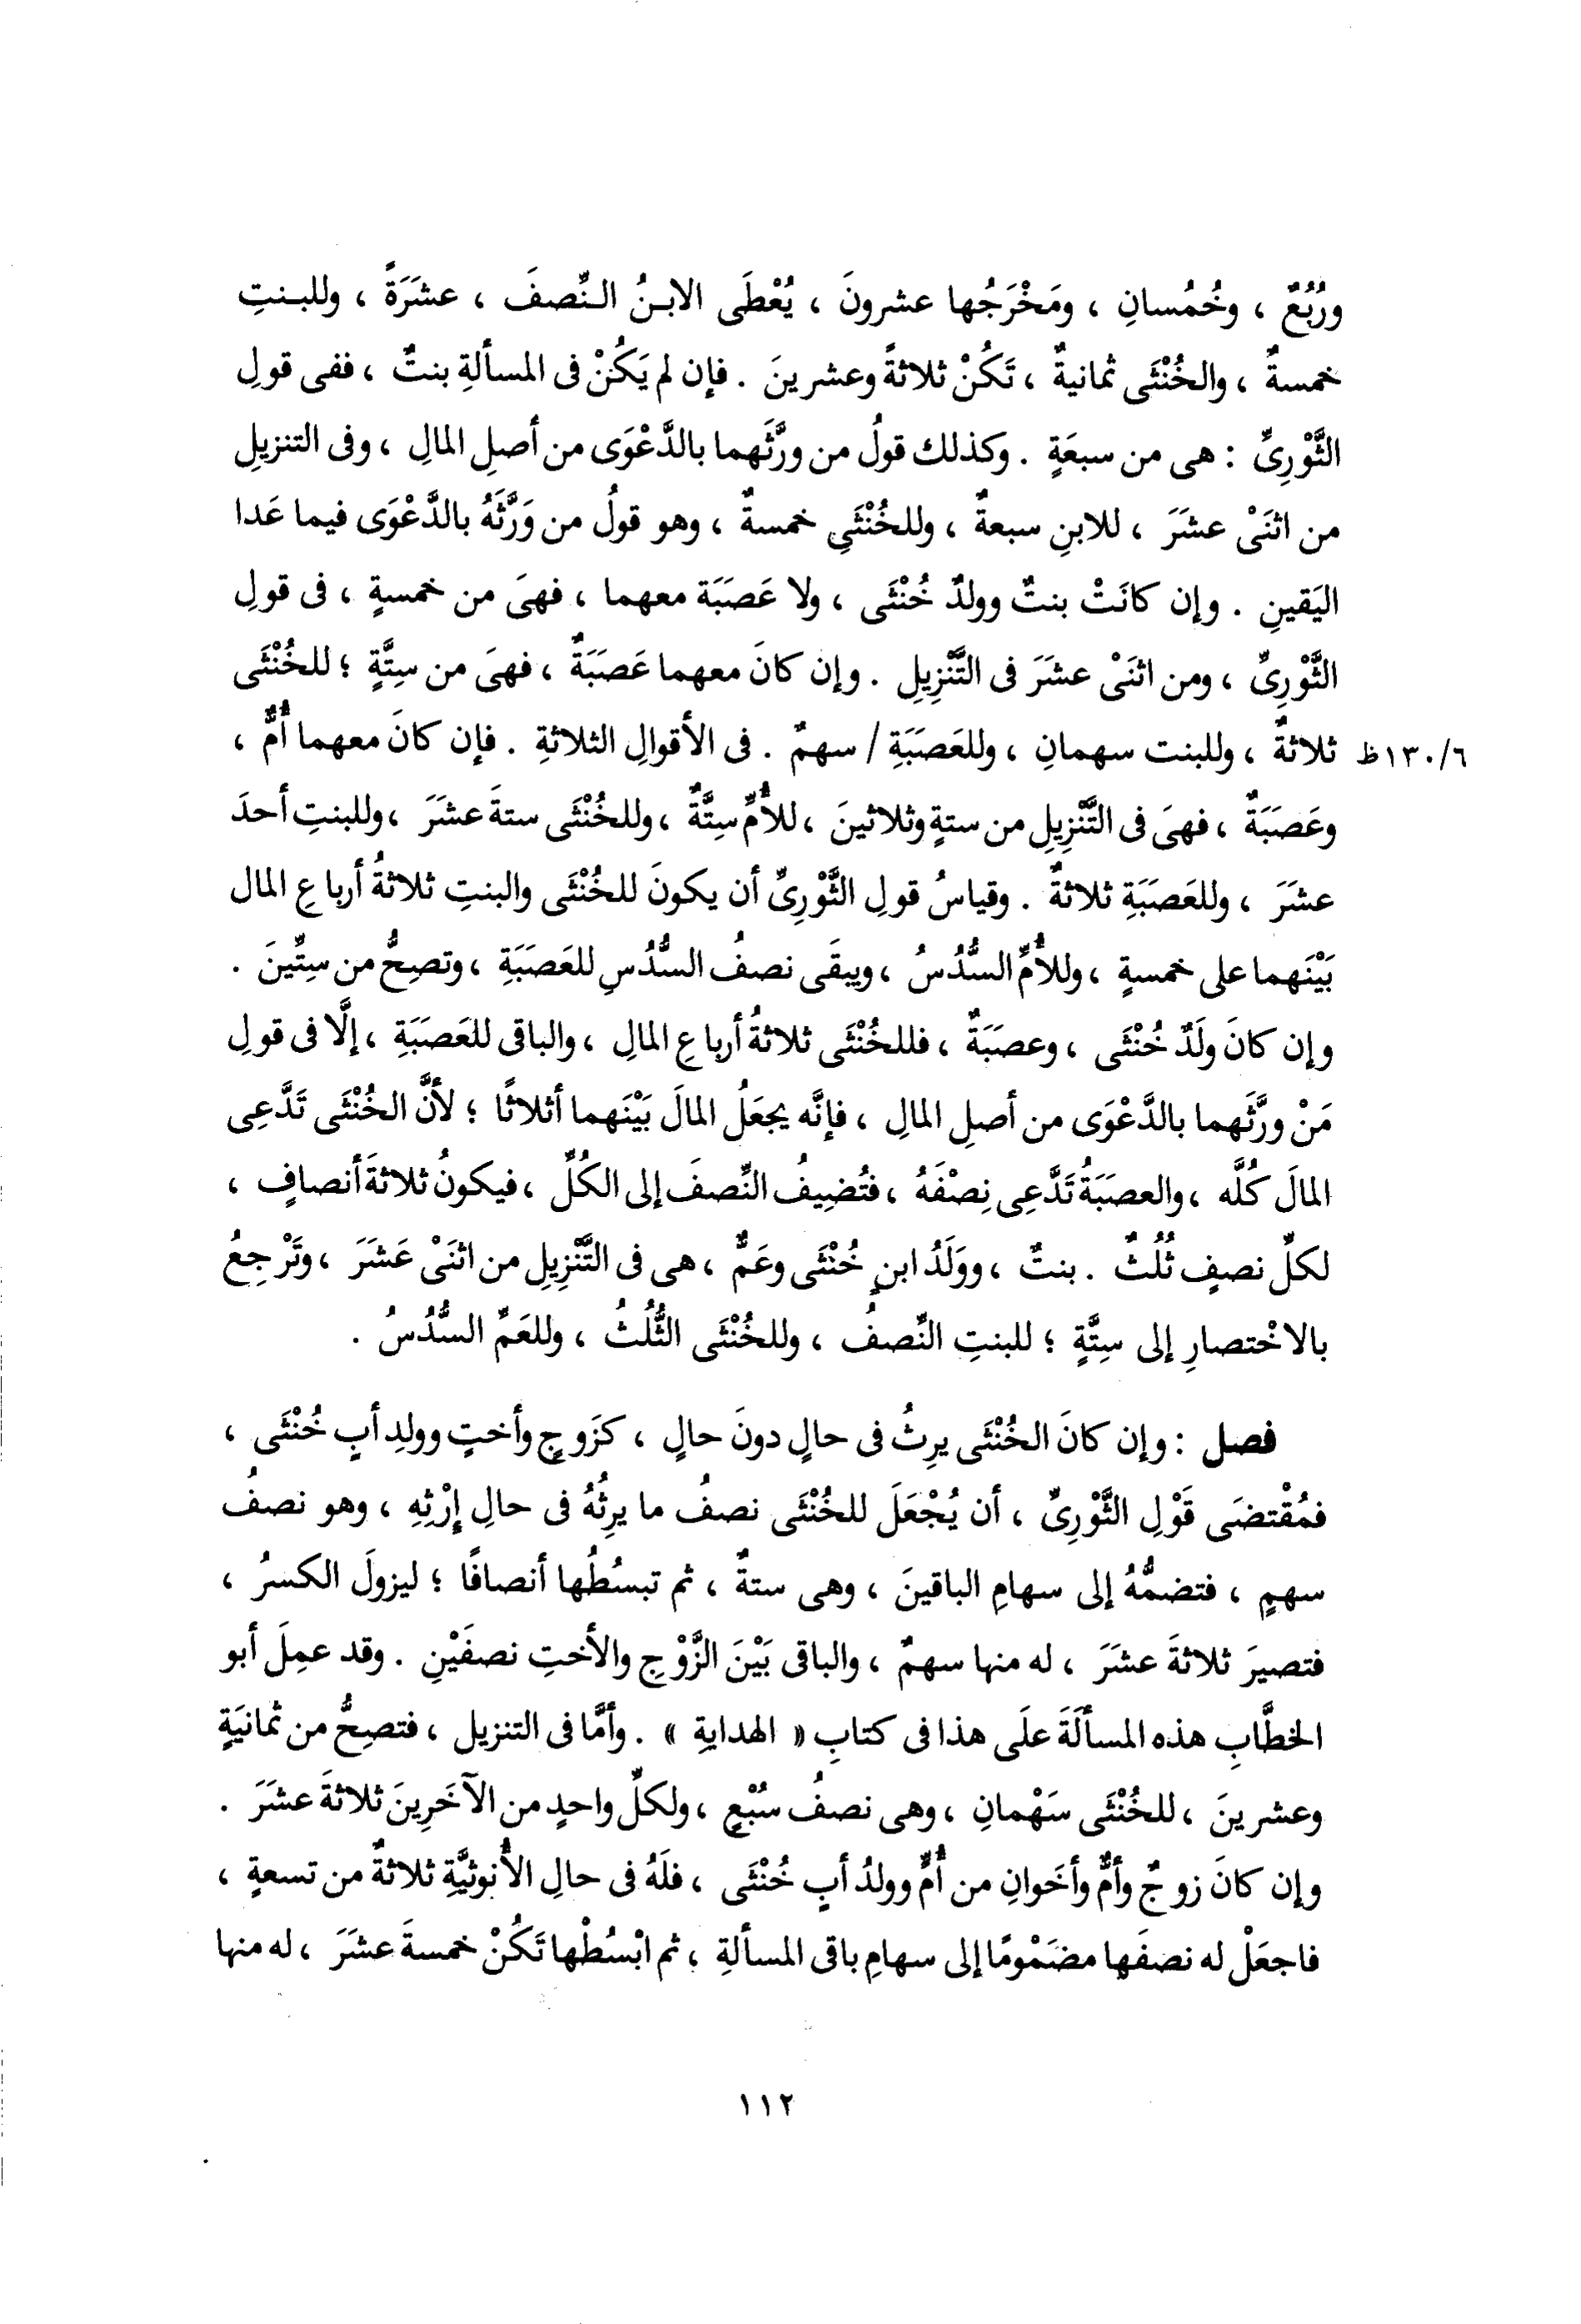 ورُبُعٌ ، وخُمُسانِ ، ومَخْرَجُها عشرونَ ، يُعْطَى الابنُ النِّصفَ ، عشَرَةً ، وللبنتِ
خمسةٌ ، والخُنْثَى ثمانيةٌ ، تَكُنْ ثلاثةً وعشرينَ . فإن لم يَكُنْ فى المسألةِ بنتٌ ، ففى قولِ
الثَّوْرِىِّ : هى من سبعَةٍ . وكذلك قولُ من ورَّثَهما بالدَّعْوَى من أصلِ المالِ ، وفى التنزيلِ
من اثنَىْ عشَرَ ، للابنِ سبعةٌ ، وللخُنْثَىِ خمسةٌ ، وهو قولُ من وَرَّثَهُ بالدَّعْوَى فيما عَدا
اليَقينِ . وإن كانَتْ بنتٌ وولدٌ خُنْثَى ، ولا عَصَبَة معهما ، فهىَ من خمسةٍ ، فى قولِ
الثَّوْرِىِّ ، ومن اثنَىْ عشَرَ فى التَّنْزِيلِ . وإن كانَ معهما عَصَبَةٌ ، فهىَ من سِتَّةٍ ؛ للخُنْثَى
ثلاثةٌ ، وللبنت سهمانِ ، وللعَصَبَةِ / سهمٌ . فى الأقوالِ الثلاثةِ . فإن كانَ معهما أُمٌّ ، ١٣٠/٦ظ
وعَصَبَةٌ ، فهىَ فى التَّنْزِيلِ من ستةٍ وثلاثينَ ، للأُمِّ سِتَّةٌ ، وللخُنْثَى ستةَ عشَرَ ، وللبنتِ أحدَ
عشَرَ ، وللعَصَبَةِ ثلاثةٌ . وقياسُ قولِ الثَّوْرِىِّ أن يكونَ للخُنْثَى والبنتِ ثلاثةُ أرباعِ المال
بَيْنَهما على خمسةٍ ، وللأُمِّ السُّدُسُ ، ويبقَى نصفُ السُّدُسِ للعَصَبَةِ ، وتصِحُّ من سِتِّينَ .
وإن كانَ ولَدٌ خُنْثَى ، وعصَبَةٌ ، فللخُنْثَى ثلاثةُ أرباعِ المالِ ، والباقى للعَصَبَةِ ، إلَّا فى قولِ
مَنْ ورَّثَهما بالدَّعْوَى من أصلِ المالِ ، فإنَّه يجعَلُ المالَ بَيْنَهما أثلاثًا ؛ لأنَّ الخُنْثَى تَدَّعِى
المالَ كُلَّه ، والعصَبَةُ تَدَّعِى نِصْفَهُ ، فتُضِيفُ النِّصفَ إلى الكُلِّ ، فيكونُ ثلاثةَ أنصافٍ ،
لكلِّ نصفٍ ثُلُثٌ . بنتٌ ، ووَلَدُ ابنٍ خُنْثَى وعَمٌّ ، هى فى التَّنْزِيلِ من اثنَىْ عَشَرَ ، وتَرْجِعُ
بالاخْتصارِ إلى سِتَّةٍ ؛ للبنتِ النِّصفُ ، وللخُنْثَى الثُّلُثُ ، وللعَمِّ السُّدُسُ .
فصل : وإن كانَ الخُنْثَى يرِثُ فى حالٍ دونَ حالٍ ، كزَوجٍ وأختٍ وولدِ أبٍ خُنْثَى ،
فمُقْتضَى قَوْلِ الثَّوْرِىِّ ، أن يُجْعَلَ للخُنْثَى نصفُ ما يرِثُهُ فى حالِ إرْثِهِ ، وهو نصفُ
سهمٍ ، فتضمُّهُ إلى سهامِ الباقينَ ، وهى ستةٌ ، ثم تبسُطُها أنصافًا ؛ ليزولَ الكسرُ ،
فتصيرَ ثلاثةَ عشَرَ ، له منها سهمٌ ، والباقى بَيْنَ الزَّوْجِ والأختِ نصفَيْنِ . وقد عمِلَ أبو
الخطَّابِ هذه المسألَةَ علَى هذا فى كتابِ « الهدايةِ » . وأمَّا فى التنزيل ، فتصِحُّ من ثمانيَةٍ
وعشرينَ ، للخُنْثَى سَهْمانِ ، وهى نصفُ سُبْعٍ ، ولكلِّ واحدٍ من الآخَرِينَ ثلاثةَ عشَرَ .
وإن كانَ زوجٌ وأمٌّ وأخَوانِ من أُمٍّ وولدُ أبٍ خُنْثَى ، فلَهُ فى حالِ الأُنوثيَّةِ ثلاثةٌ من تسعةٍ ،
فاجعَلْ له نصفَها مضَمْومًا إلى سهامِ باقى المسألةِ ، ثم ابْسُطْها تَكُنْ خمسةَ عشَرَ ، له منها
١١٢